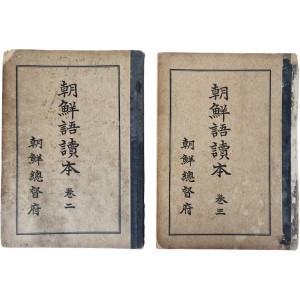 朝鮮語讀本 卷二
朝鮮總督府
朝鮮語讀本 卷三
朝鮮總督府